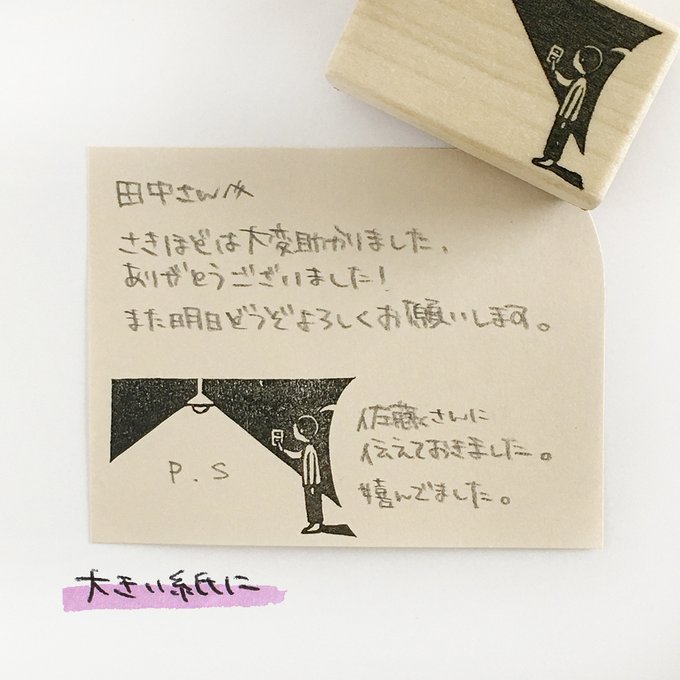 田中さんへ
さきほどは大変助かりました、
ありがとうございました!
また明日どうぞよろしくお願いします。
P.S
佐藤さんに
伝えておきました。
喜んでました。
大きい紙に